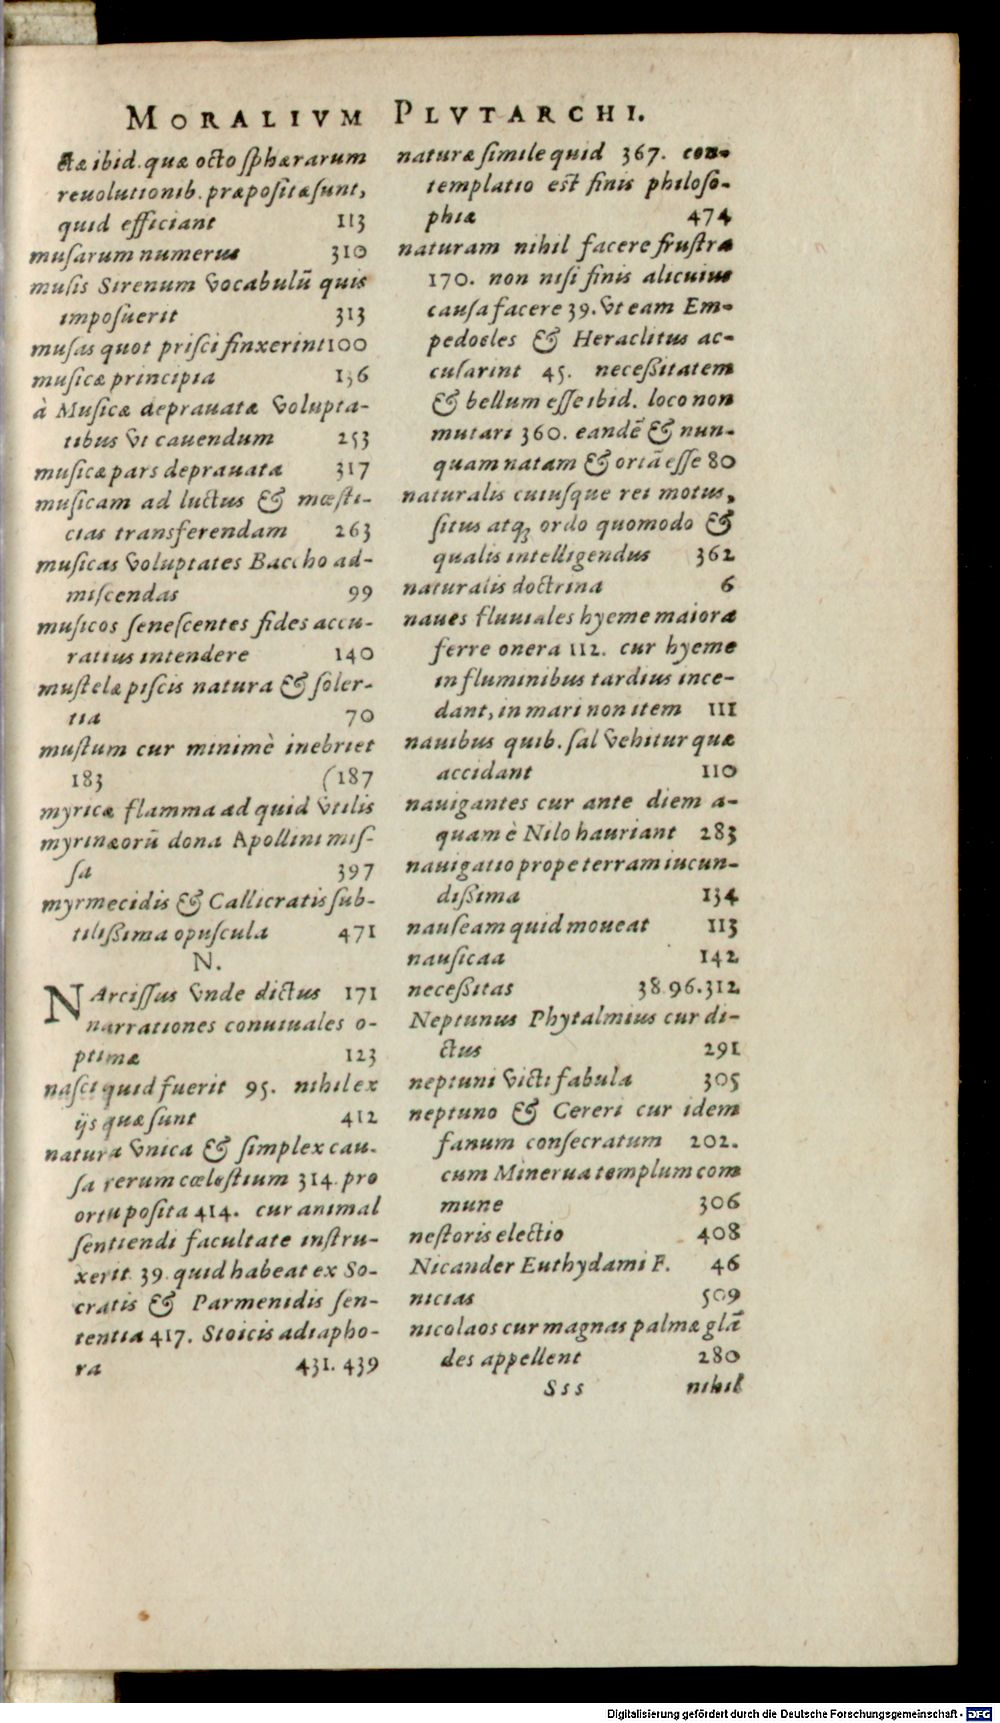 MORALIVM PLVTARCHI.
ctæ ibid. quæ octo sphærarum
reuolutionib. præpositæ sunt,
quid efficiant 113
musarum numerus 310
musis Sirenum vocabulū quis
imposuerit 313
musas quot prisci finxerint 100
musicæ principia 136
à Musicæ deprauatæ volupta-
tibus vt cauendum 253
musicæ pars deprauata 317
musicam ad luctus & mœsti-
cias transferendam 263
musicas voluptates Baccho ad-
miscendas 99
musicos senescentes fides accu-
ratius intendere 140
mustelæ piscis natura & soler-
tia 70
mustum cur minimè inebriet
183 (187
myricæ flamma ad quid vtilis
myrinæorū dona Apollini mis-
sa 397
myrmecidis & Callicratis sub-
tilißima opuscula 471
N.
NArcissus vnde dictus 171
narrationes conuiuales o-
ptimæ 123
nasci quid fuerit 95. nihil ex
ijs quæ sunt 412
natura vnica & simplex cau-
sa rerum cœlestium 314. pro
ortu posita 414. cur animal
sentiendi facultate instru-
xerit 39. quid habeat ex So-
cratis & Parmenidis sen-
tentia 417. Stoicis adiapho-
ra 431. 439
naturæ simile quid 367. con-
templatio est finis philoso-
phiæ 474
naturam nihil facere frustra
170. non nisi finis alicuius
causa facere 39. vt eam Em-
pedocles & Heraclitus ac-
cusarint 45. neceßitatem
& bellum esse ibid. loco non
mutari 360. eandē & nun-
quam natam & ortā esse 80
naturalis cuiusque rei motus,
situs atq; ordo quomodo &
qualis intelligendus 362
naturalis doctrina 6
naues fluuiales hyeme maiora
ferre onera 112. cur hyeme
in fluminibus tardius ince-
dant, in mari non item 111
nauibus quib. sal vehitur quæ
accidant 110
nauigantes cur ante diem a-
quam è Nilo hauriant 283
nauigatio prope terram iucun-
dißima 134
nauseam quid moueat 113
nausicaa 142
neceßitas 38.96.312
Neptunus Phytalmius cur di-
ctus 291
neptuni victi fabula 305
neptuno & Cereri cur idem
fanum consecratum 202.
cum Minerua templum com
mune 306
nestoris electio 408
Nicander Euthydami F. 46
nicias 509
nicolaos cur magnas palmæ glā
des appellent 280
Sss nihil
Digitalisierung gefördert durch die Deutsche Forschungsgemeinschaft - DFG